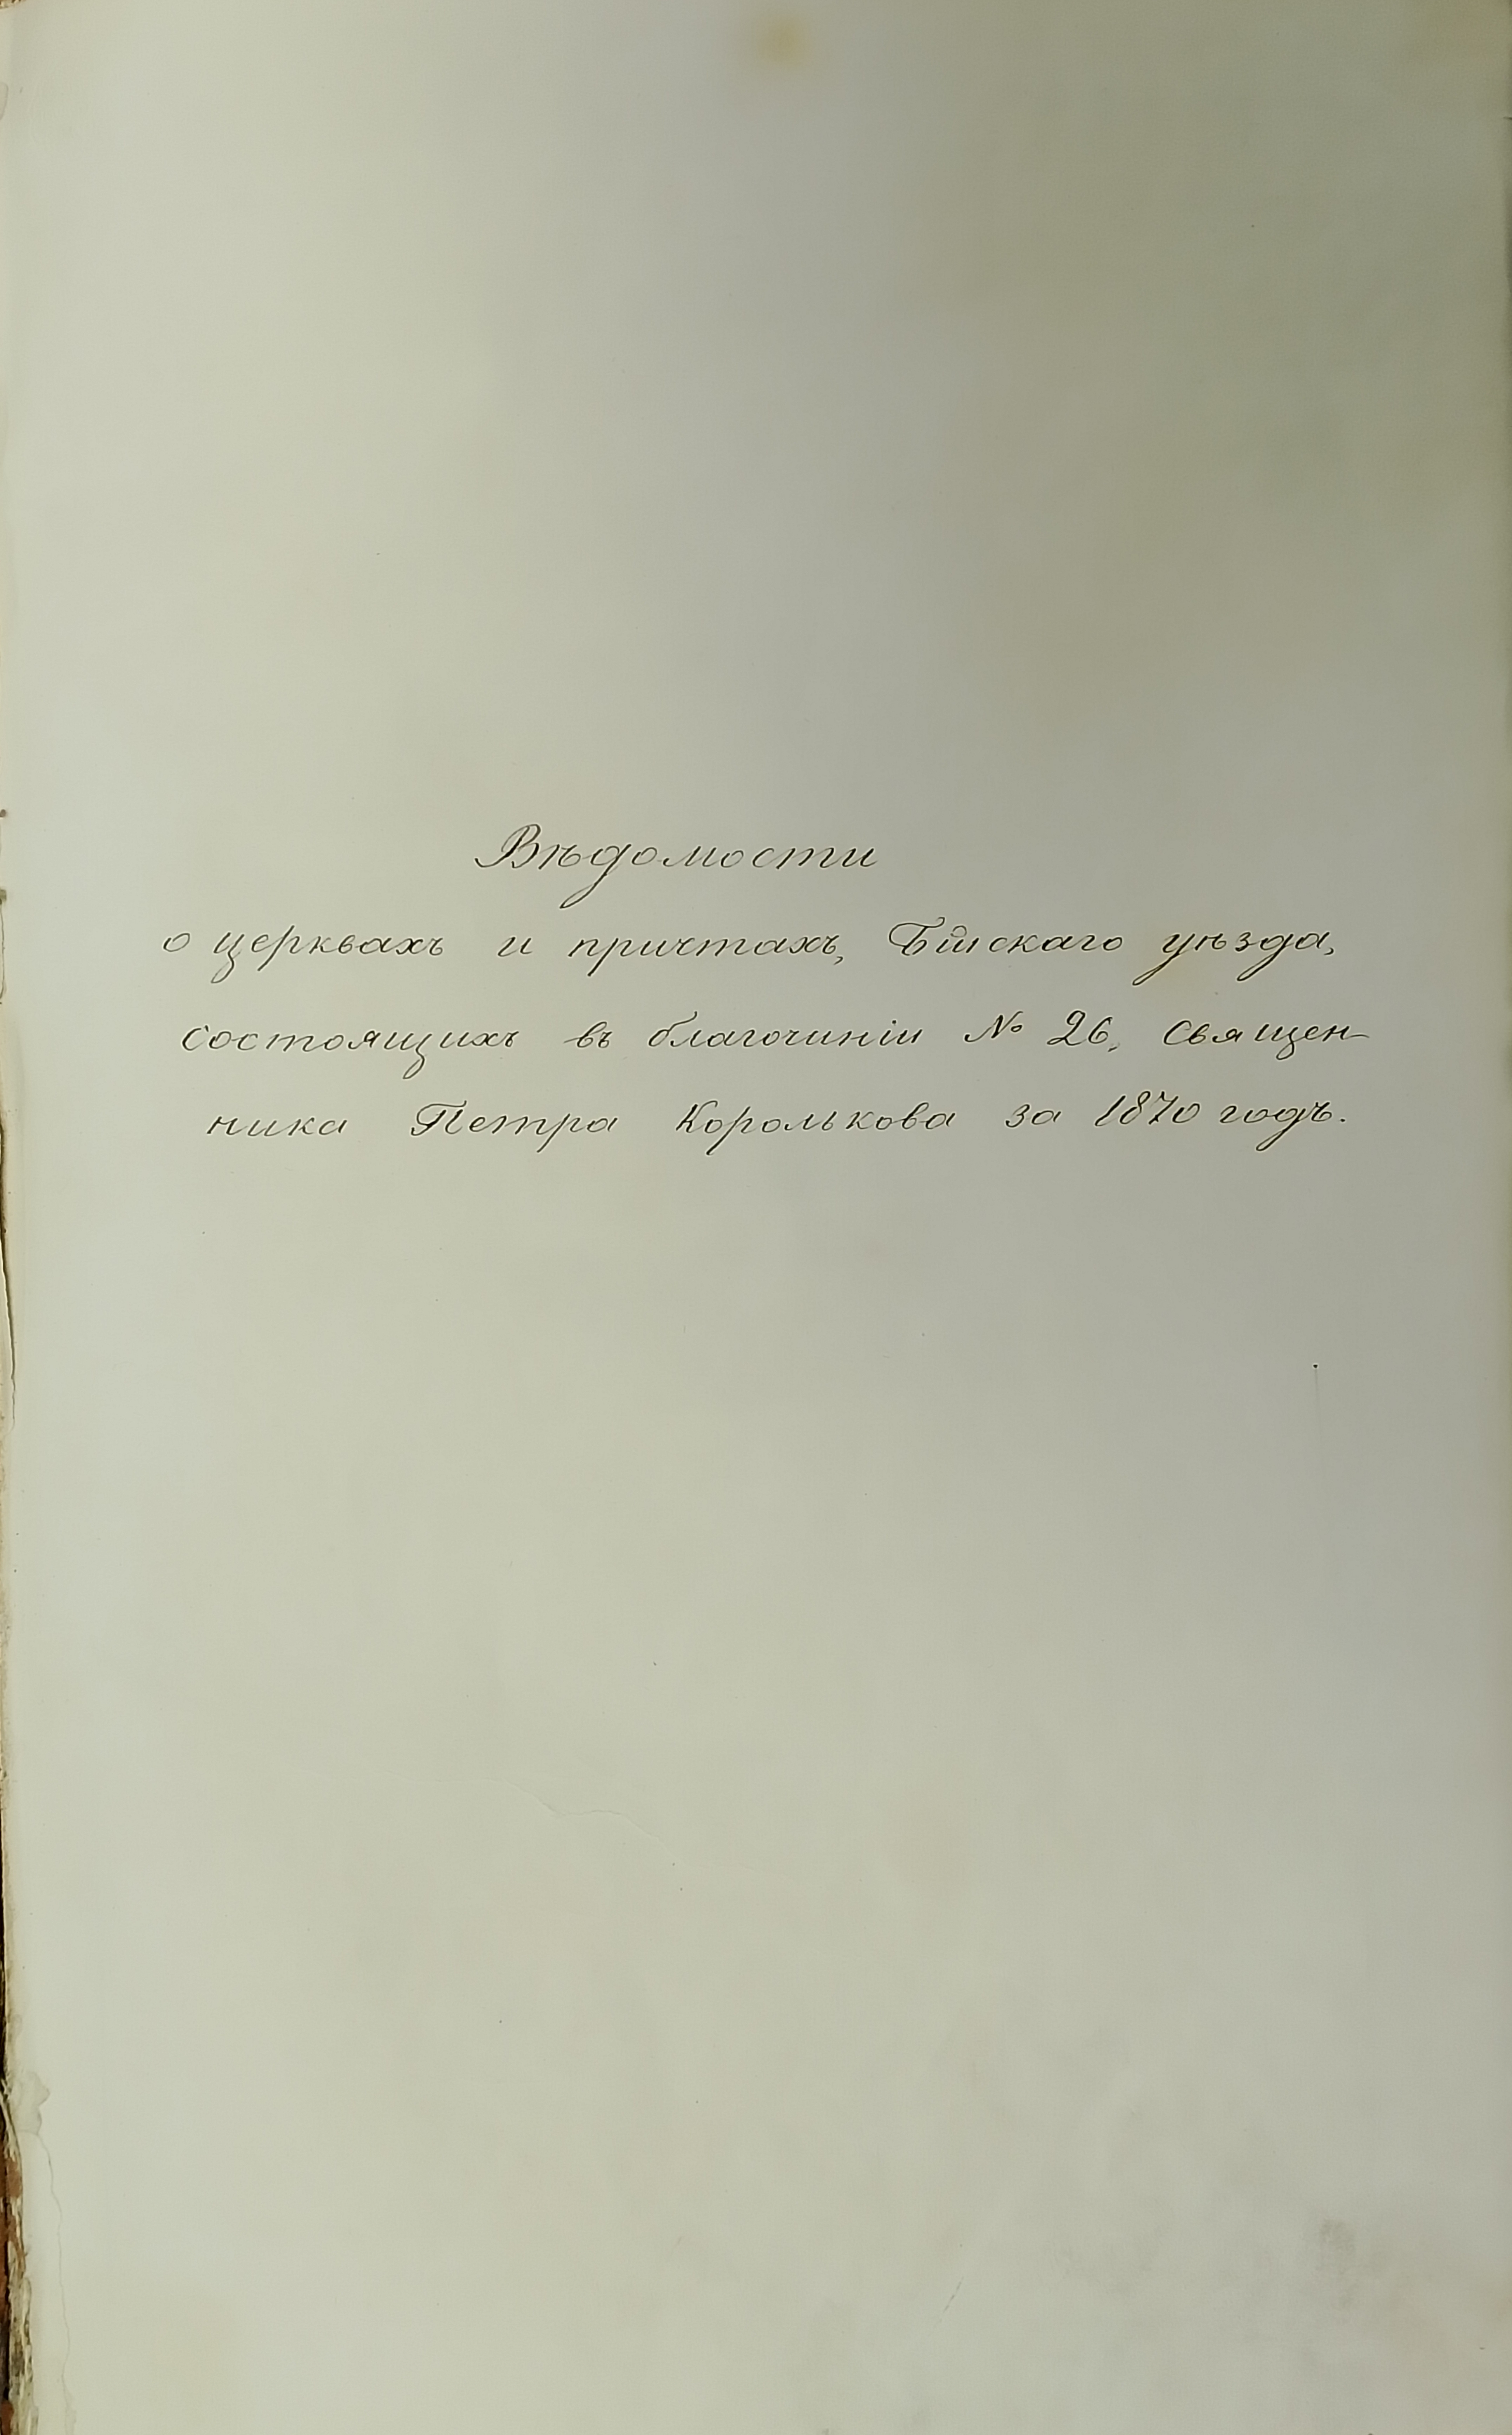 Вѣдомости
о церквахъ и причтахъ, Бійскаго уѣзда,
состоящихъ въ благочиніи № 26, священ-
ника Петра Королькова за 1870 годъ.